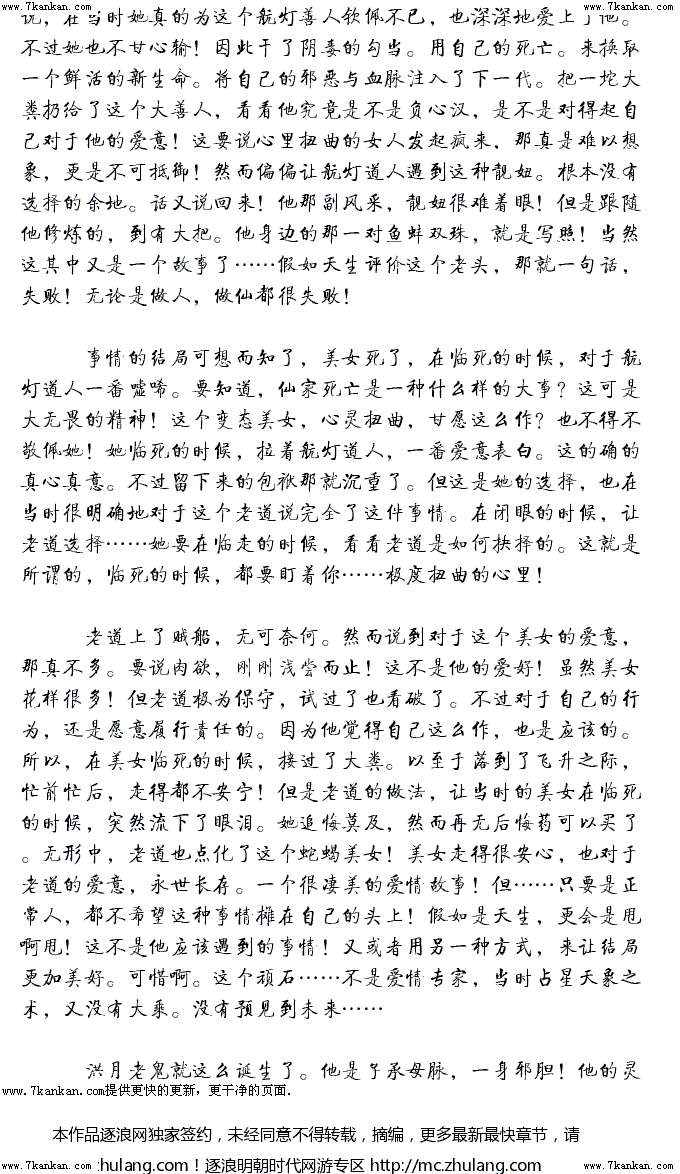 www.7kankan.com www.7kankan.com
说，在当时她真的为这个航灯善人钦佩不已，也深深地爱上了他。
不过她也不甘心输！因此干了阴毒的勾当。用自己的死亡。来换取
一个鲜活的新生命。将自己的邪恶与血脉注入了下一代。把一坨大
粪扔给了这个大善人，看看他究竟是不是负心汉，是不是对得起自
己对于他的爱意！这要说心里扭曲的女人发起疯来，那真是难以想
象，更是不可抵御！然而偏偏让航灯道人遇到这种靓妞。根本没有
选择的余地。话又说回来！他那副风采，靓妞很难着眼！但是跟随
他修炼的，到有大把。他身边的那一对鱼蚌双珠，就是写照！当然
这其中又是一个故事了……假如天生评价这个老头，那就一句话，
失败！无论是做人，做仙都很失败！
事情的结局可想而知了，美女死了，在临死的时候，对于航
灯道人一番嘘唏。要知道，仙家死亡是一种什么样的大事？这可是
大无畏的精神！这个变态美女，心灵扭曲，甘愿这么作？也不得不
敬佩她！她临死的时候，拉着航灯道人，一番爱意表白。这的确的
真心真意。不过留下来的包袱那就沉重了。但这是她的选择，也在
当时很明确地对于这个老道说完全了这件事情。在闭眼的时候，让
老道选择……她要在临走的时候，看看老道是如何抉择的。这就是
所谓的，临死的时候，都要盯着你……极度扭曲的心里！
老道上了贼船，无可奈何。然而说到对于这个美女的爱意，
那真不多。要说肉欲，刚刚浅尝而止！这不是他的爱好！虽然美女
花样很多！但老道极为保守，试过了也看破了。不过对于自己的行
为，还是愿意履行责任的。因为他觉得自己这么作，也是应该的。
所以，在美女临死的时候，接过了大粪。以至于落到了飞升之际，
忙前忙后，走得都不安宁！但是老道的做法，让当时的美女在临死
的时候，突然流下了眼泪。她追悔莫及，然而再无后悔药可以买了
。无形中，老道也点化了这个蛇蝎美女！美女走得很安心，也对于
老道的爱意，永世长存。一个很凄美的爱情故事！但……只要是正
常人，都不希望这种事情摊在自己的头上！假如是天生，更会是甩
啊甩！这不是他应该遇到的事情！又或者用另一种方式，来让结局
更加美好。可惜啊。这个顽石……不是爱情专家，当时占星天象之
术，又没有大乘。没有预见到未来……
洪月老鬼就这么诞生了。他是子承母脉，一身邪胆！他的灵
www.7kankan.com提供更快的更新，更干净的页面.
本作品逐浪网独家签约，未经同意不得转载，摘编，更多最新最快章节，请
www.7kankan.com zhulang.com！逐浪明朝时代网游专区 http://mc.zhulang.com www.7kankan.com